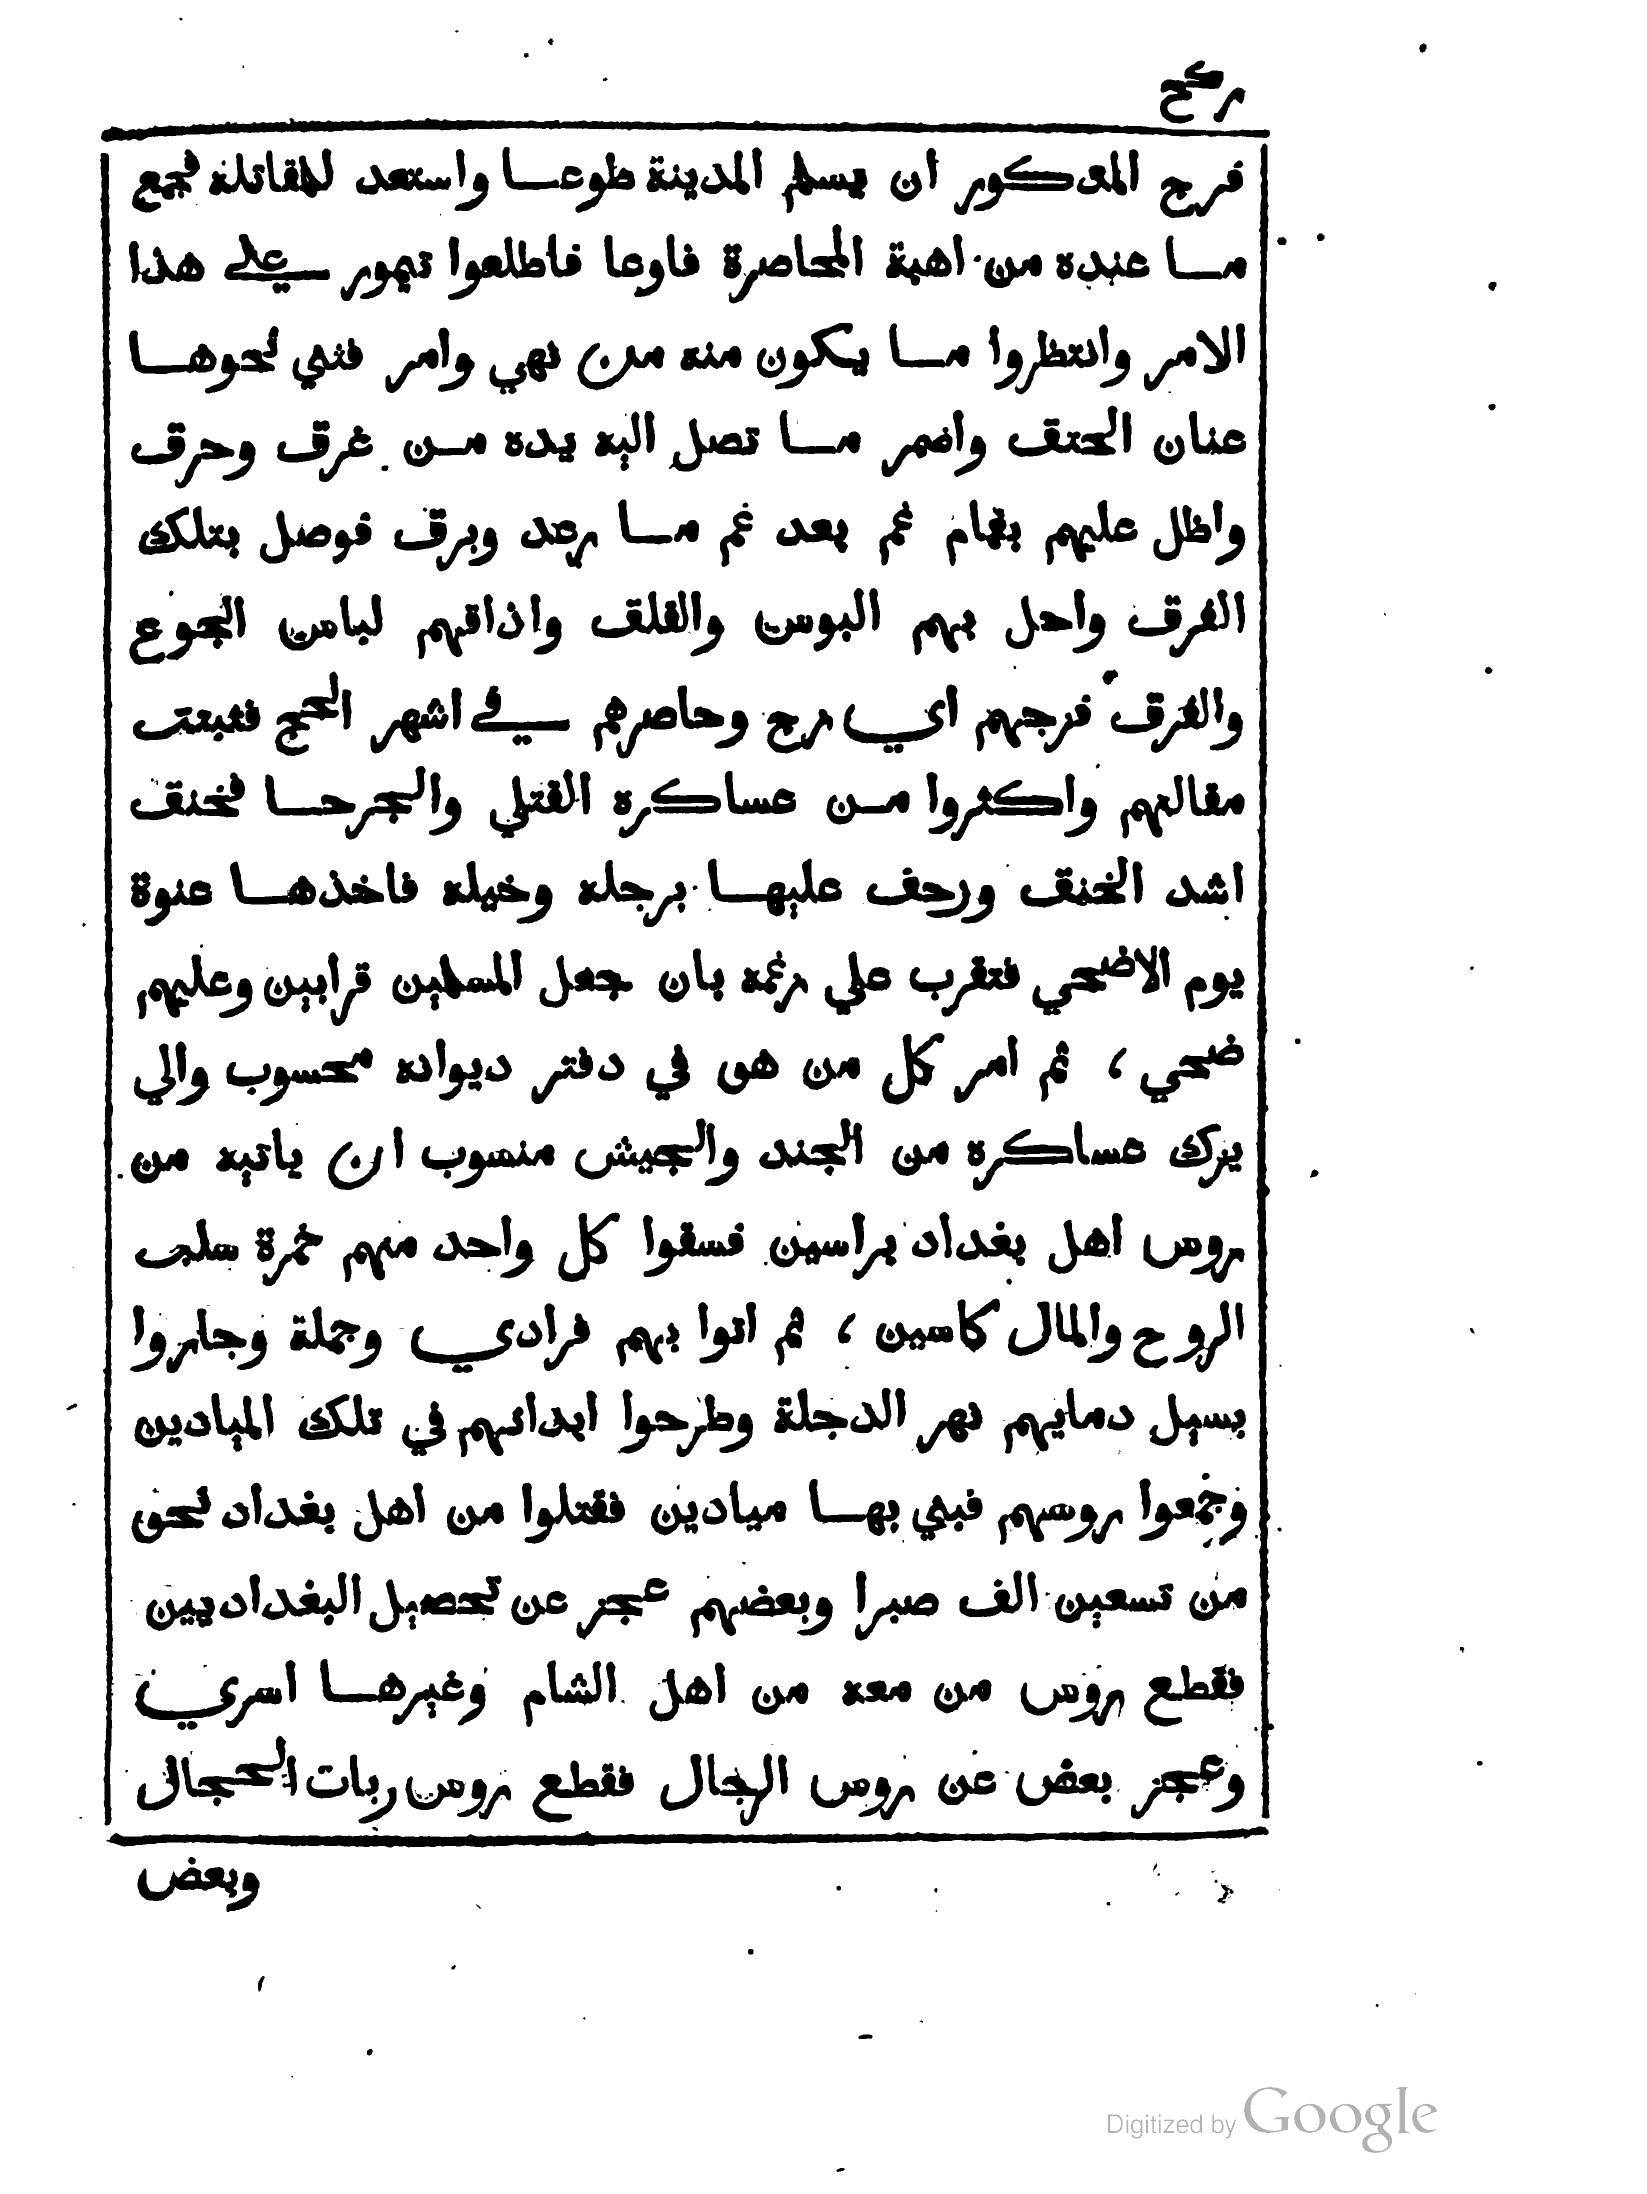 ركح
فرج المذكور ان يسلم المدينة طوعا واستعد للمقاتلة فجمع
ما عنده من اهبة المحاصرة فاوعا فاطلعوا تيمور علي هذا
الامر وانتظروا ما يكون منه من نهي وامر فثني نحوها
عنان الحتف واضمر ما تصل اليه يده من غرق وحرق
واظل عليهم بغمام غم بعد غم ما رعد وبرق فوصل بتلك
الفرق واحل بهم البوس والقلق واذاقهم لباس الجوع
والفرق فرجهم اي رج وحاصرهم في اشهر الحج فثبتت
مقالتهم واكثروا من عساكره القتلي والجرحا فحنق
اشد الحنق وزحف عليها برجله وخيله فاخذها عنوة
يوم الاضحي فتقرب علي زعمه بان جعل المسلمين قرابين وعليهم
ضحي ، ثم امر كل من هو في دفتر ديوانه محسوب والي
يزك عساكره من الجند والجيش منسوب ان ياتيه من
روس اهل بغداد براسين فسقوا كل واحد منهم خمرة سلب
الروح والمال كاسين ، ثم اتوا بهم فرادي وجملة وجاروا
بسيل دمايهم نهر الدجلة وطرحوا ابدانهم في تلك الميادين
وجمعوا روسهم فبني بها ميادين فقتلوا من اهل بغداد نحو
من تسعين الف صبرا وبعضهم عجز عن تحصيل البغداديين
فقطع روس من معه من اهل الشام وغيرها اسري
وعجز بعض عن روس الرجال فقطع روس ربات الحجال
وبعض
Digitized by Google